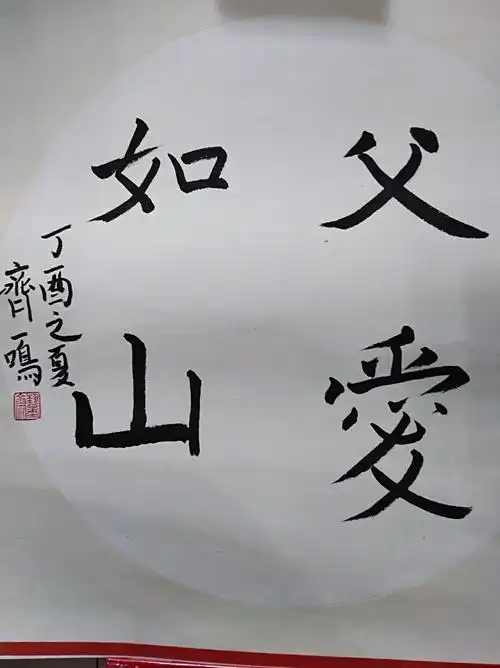 父愛
如山
丁酉之夏
齊一鳴